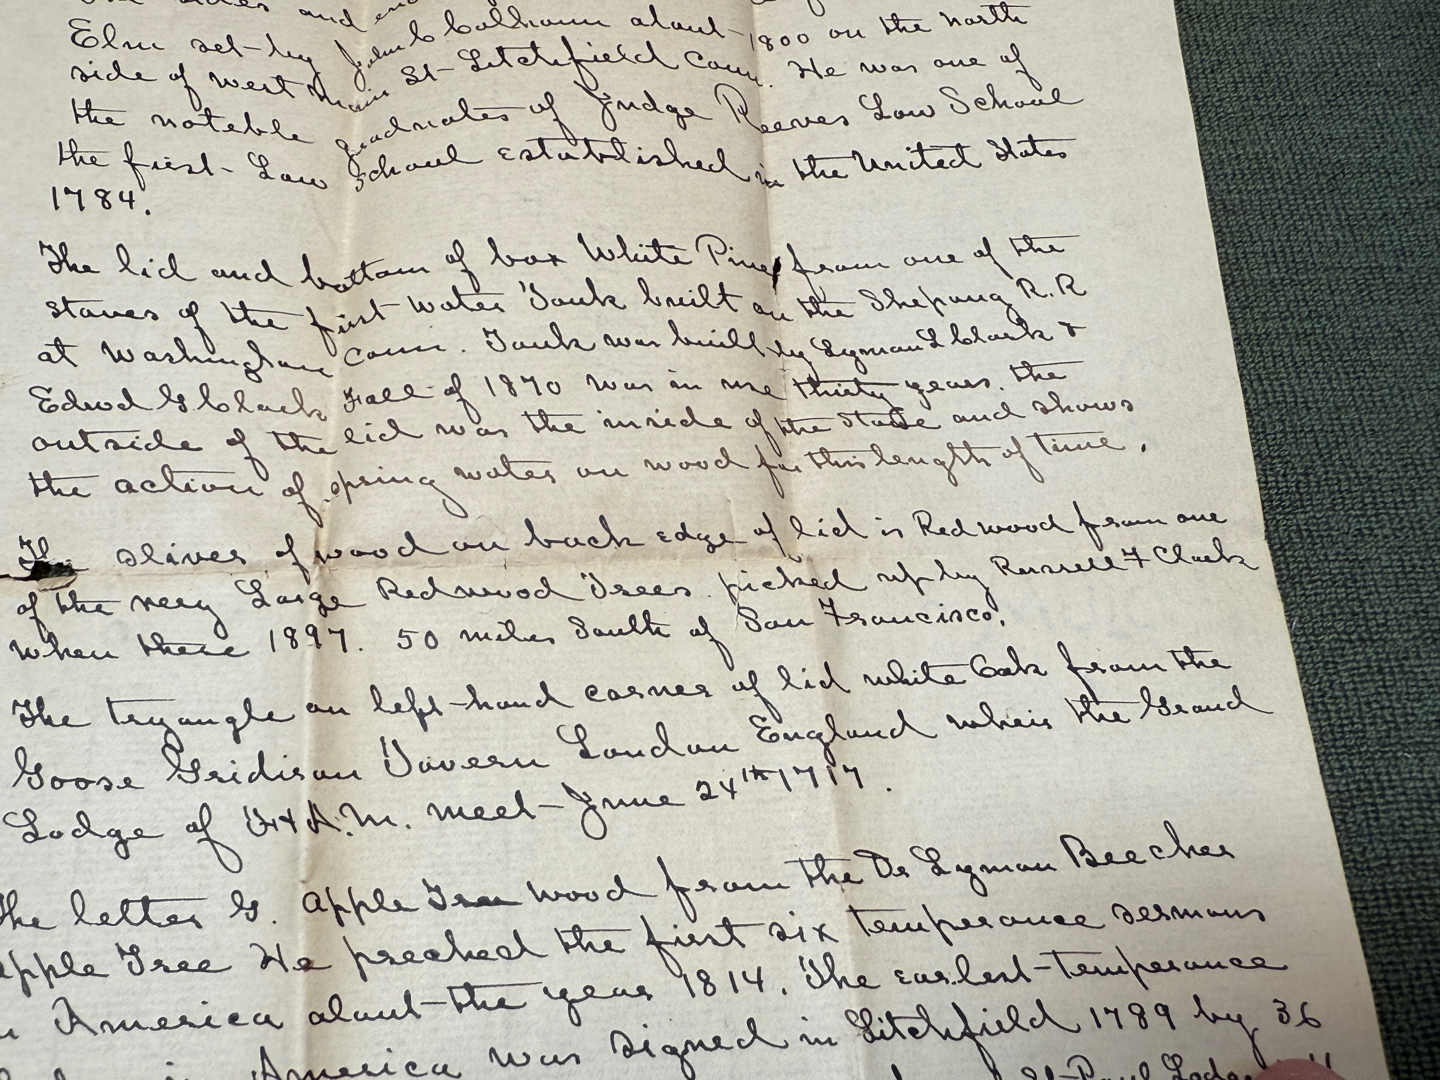 The sides and
Elm set-by John C Calhoun about-1800 on the north
side of west main St-Litchfield Conn. He was one of
the noteble graduates of Judge Reeves Law School
the first-Law School established in the United States
1784.
The lid and bottom of box White Pine from one of the
staves of the first Water Tank built on the Shepaug R.R
at Washington Conn. Tank was built by Lyman L Clark &
Edwd G Clark Fall of 1870 was in use thirty years. the
outside of the lid was the inside of the stave and shows
the action of spring water on wood for this length of time.
The slives of wood on back edge of lid is Redwood from one
of the very Large Redwood Trees. picked up by Russell F Clark
when there 1897. 50 miles South of San Francisco.
The tryangle on left-hand corner of lid white Oak from the
Goose Gridiron Tavern London England wheir the Grand
Lodge of F&A.M. meet-June 24th 1717.
The letter G. apple Tree wood from the Dr Lyman Beecher
apple Tree He preached the first six temperance sermons
America about-the year 1814. The earlest-temperance
in America was signed in Litchfield 1789 by 36
St-Paul Lodge